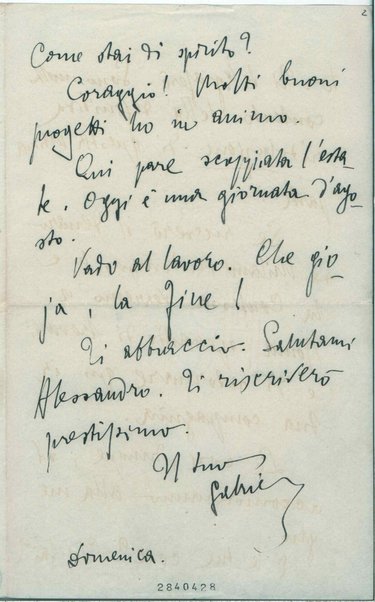 2
Come stai di spirito?
Coraggio! Molti buoni
progetti ho in animo.
Qui pare scoppiata l'esta-
te. Oggi è una giornata d'ago-
sto.
Vado al lavoro. Che gio-
ja, la fine!
Ti abbraccio. Salutami
Alessandro. Ti riscriverò
prestissimo.
Il tuo
Gabriel
Domenica.
2840428